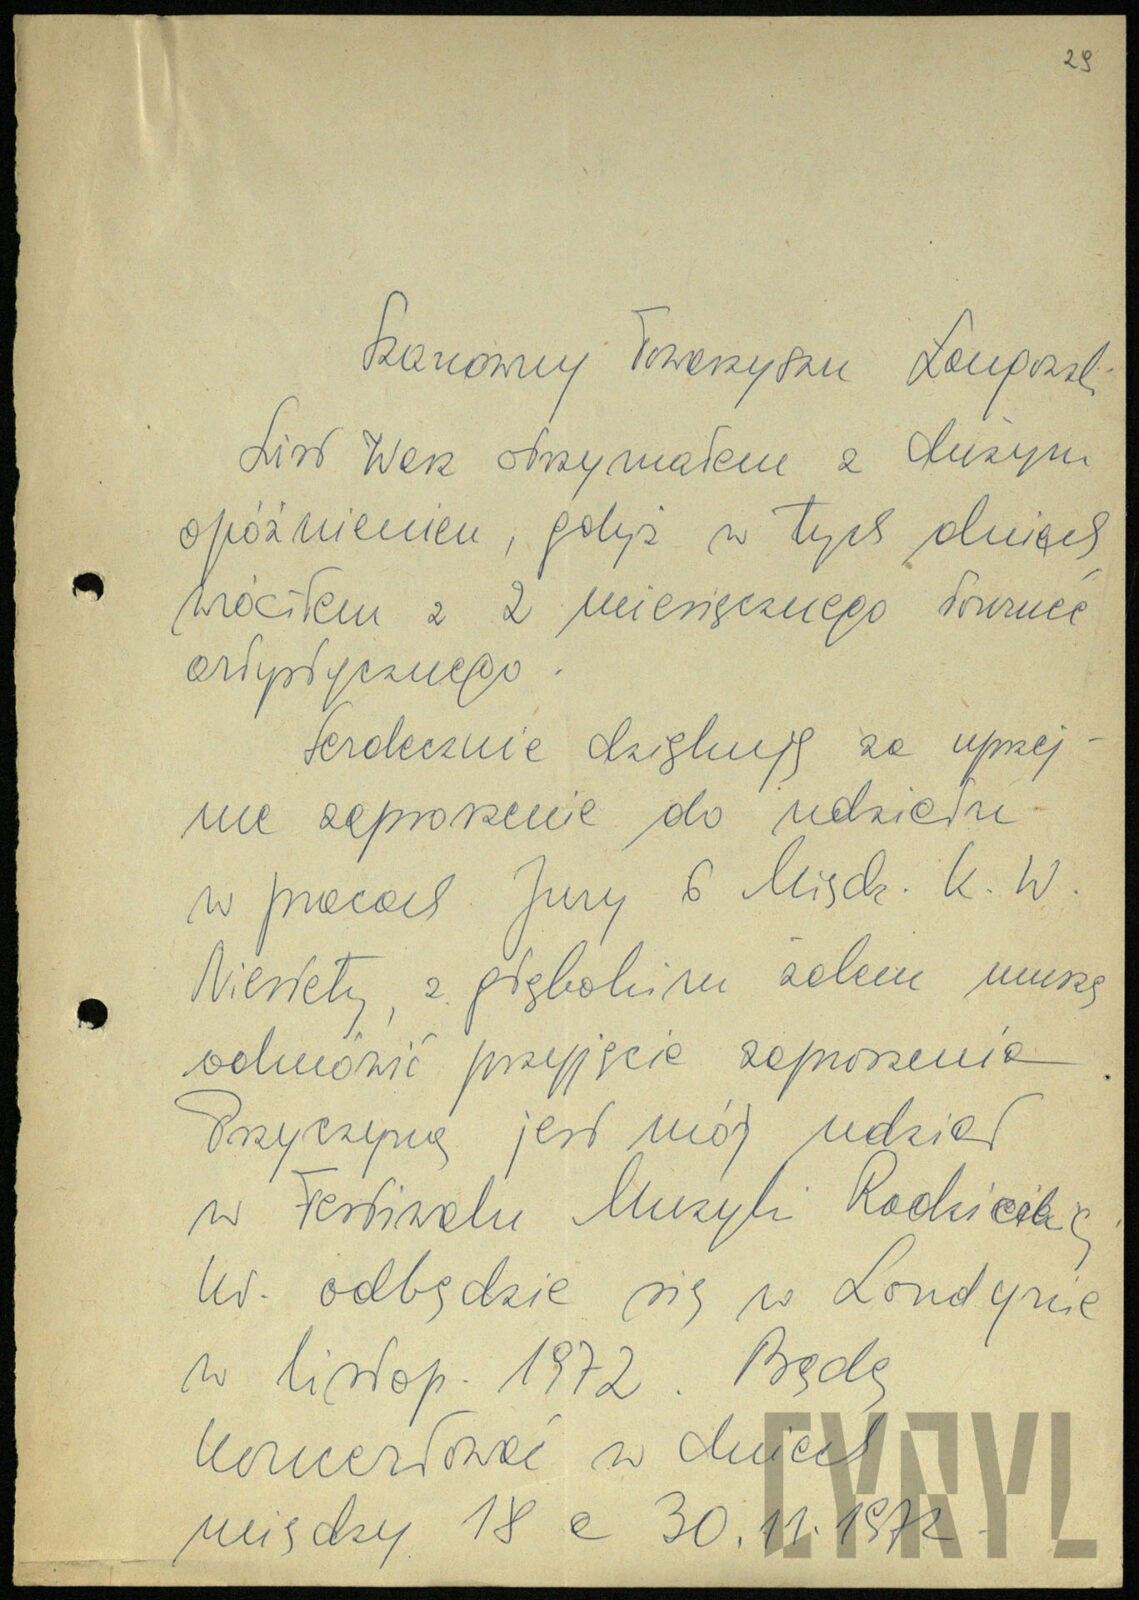 29
Szanowny Towarzyszu
List Wasz otrzymałem z dużym
opóźnieniem, gdyż w tych dniach
wróciłem z 2 miesięcznego tournée
artystycznego.
Serdecznie dziękuję za uprzej-
me zaproszenie do udziału
w pracach Jury 6 Międz. K. W.
Niestety, z głębokim żalem muszę
odmówić przyjęcia zaproszenia
Przyczyną jest mój udział
w Festiwalu Muzyki Radzieckiej,
kt. odbędzie się w Londynie
w listop. 1972. Będę
koncertować w dniach
między 18 a 30.11.1972.
CYRYL